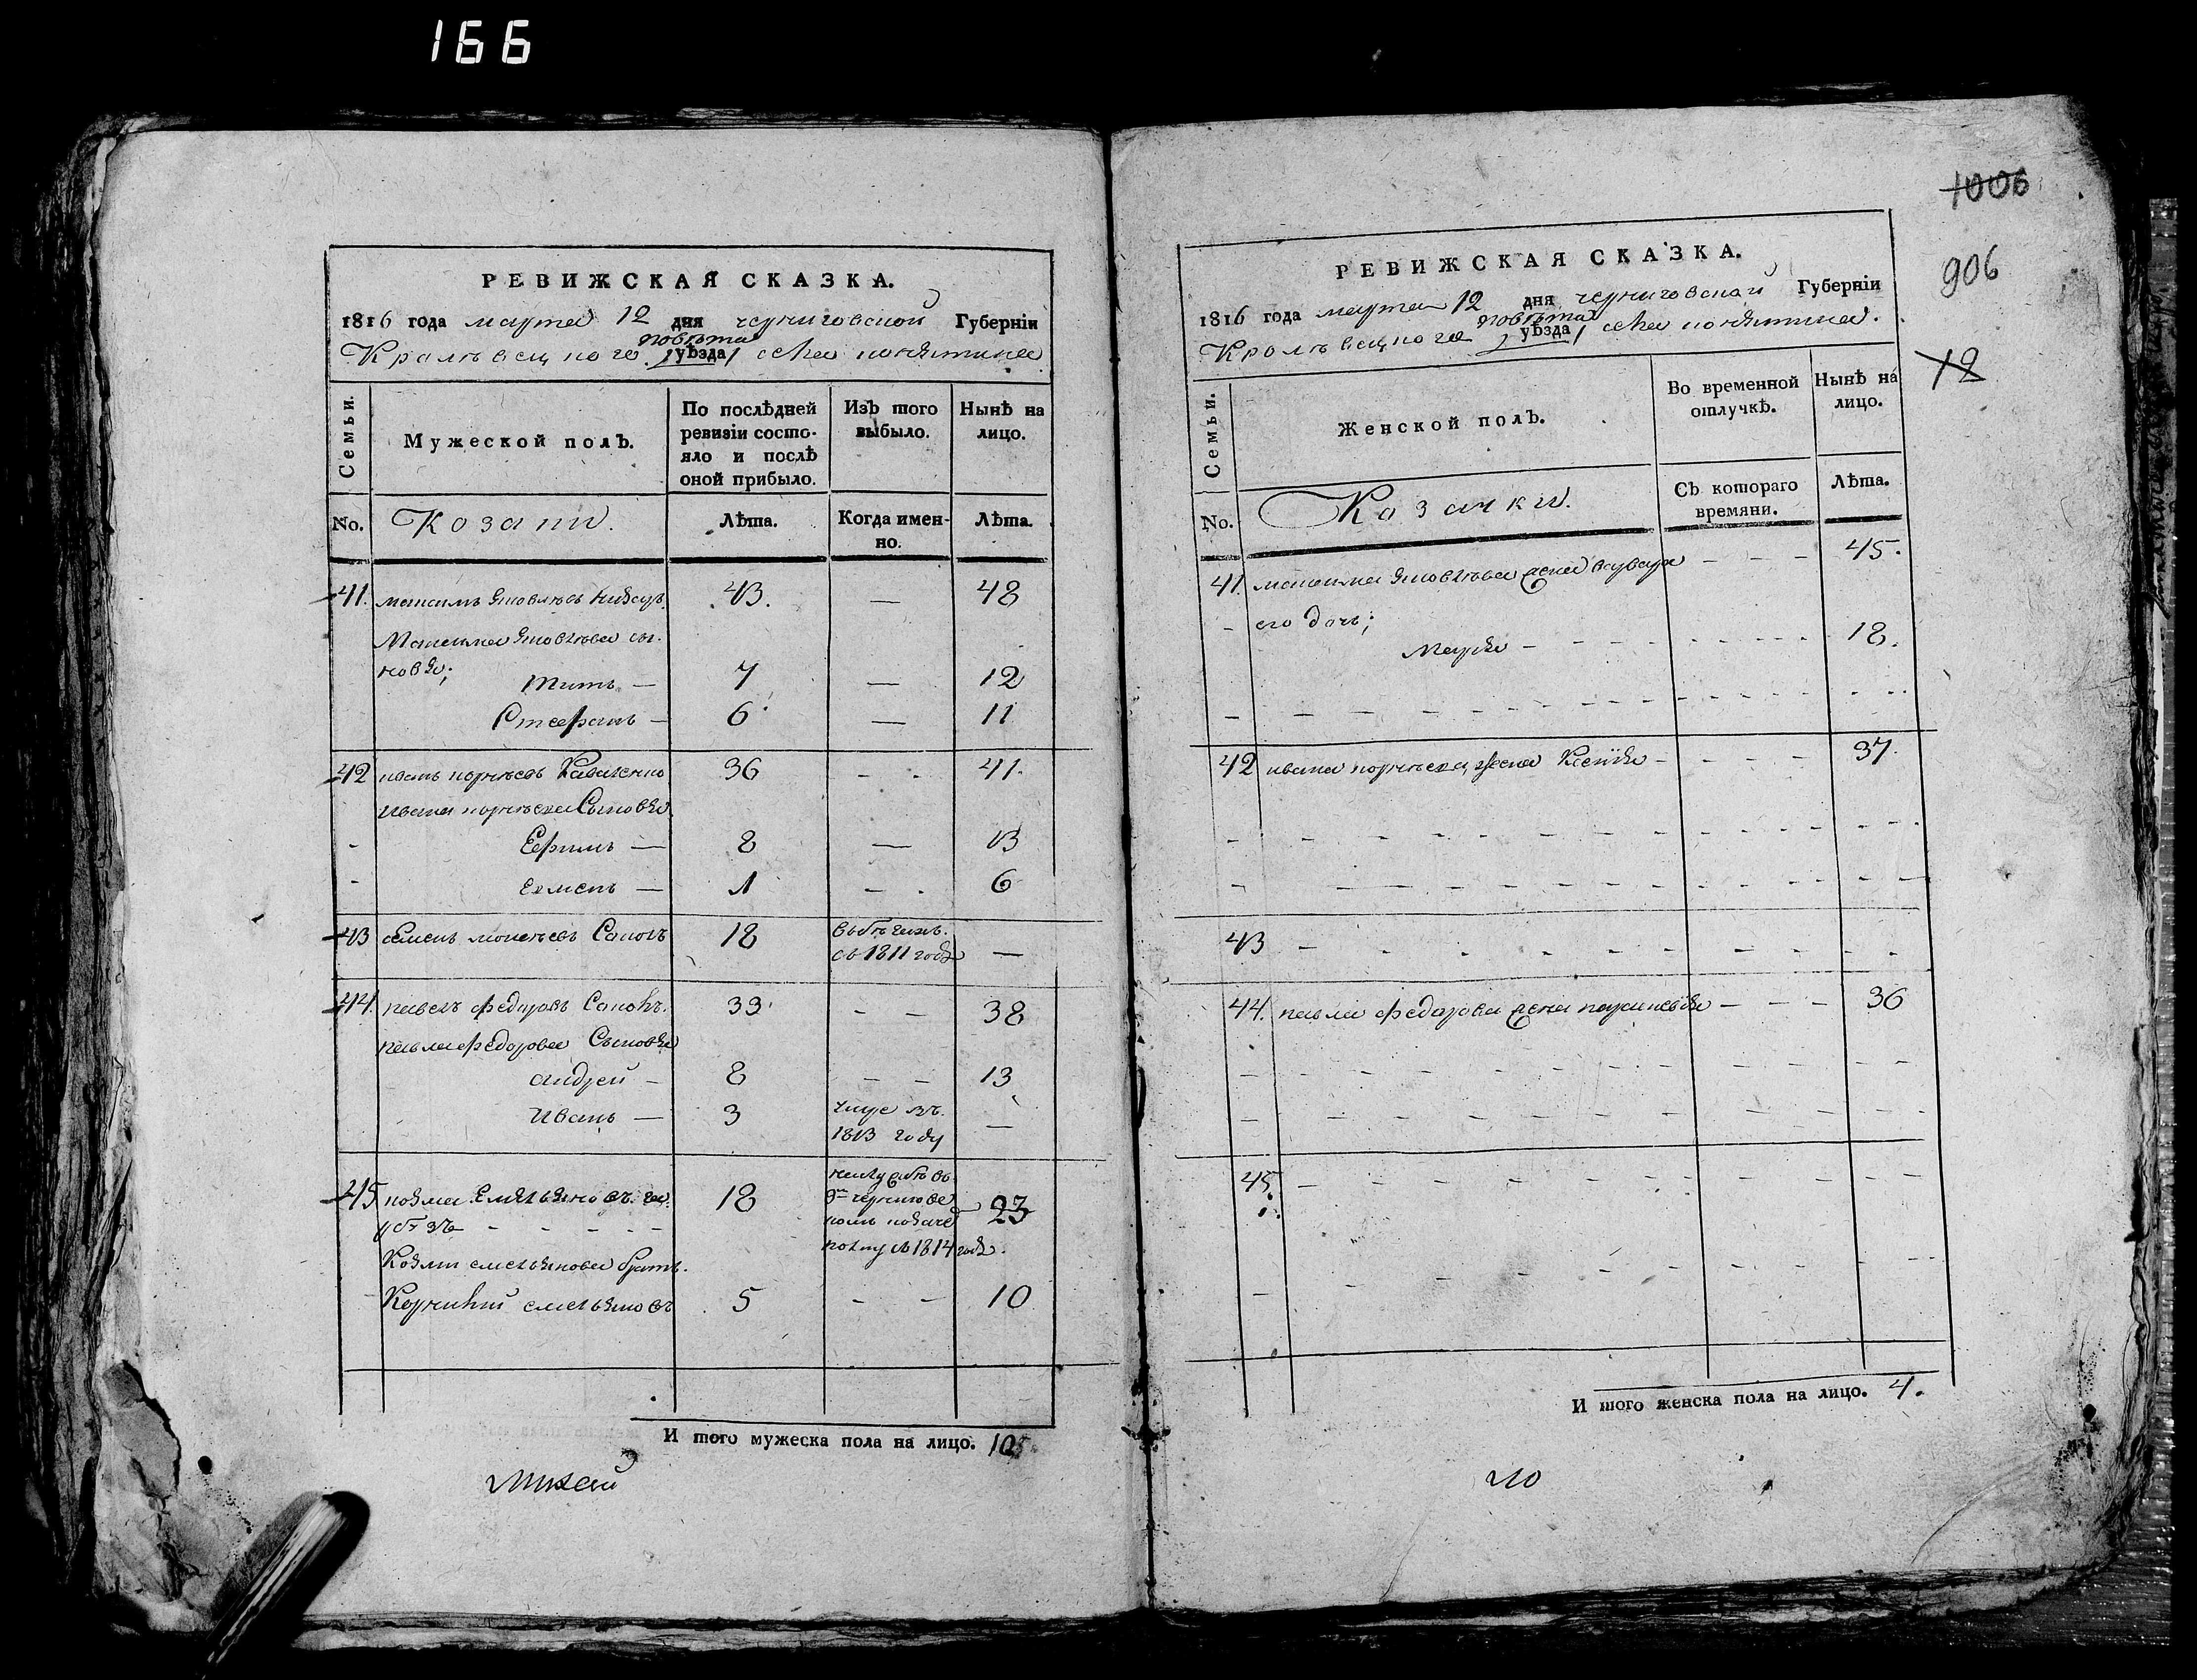 166
РЕВИЖСКАЯ СКАЗКА.
1816 года марта 12 дня черниговской Губерніи
повѣта
Кролевецкого уѣзда села
Семьи.
Мужеской полЪ.
По послѣдней ревизіи состояло и послѣ оной прибыло.
ИзЪ того выбыло.
Нынѣ на лицо.
No.
Козаки.
Лѣта.
Когда именно.
Лѣта.
41. максимъ яковлевъ 43. — 48
Максима яковлева сы-
новя;
титъ — 7 — 12
Стефанъ — 6 — 11
42 иванъ корнѣевъ 36 - - 41.
Ивана корнѣева Сыновя
Ефимъ — 8 — 13
— 1 - - 6
43 семенъ 18
въ 1811 годѣ —
44. павелъ федоровъ 33 - - 38
павла федорова Сыновя
андрей - 8 - - 13
иванъ — 3 умре въ
1813 году —
45 козма Емельяновъ 18 23
1814
Козми емельянова братъ
Корнилий емельяновъ 5 - - 10
И того мужеска пола на лицо. 10
1006
906
12
РЕВИЖСКАЯ СКАЗКА.
1816 года марта 12 дня черниговской Губерніи
повѣта
Кролевецкого уѣзда села
Семьи.
Женской полЪ.
Во временной отлучкѣ.
Нынѣ на лицо.
No.
Козачки.
СЪ котораго времяни.
Лѣта.
41 максима яковлева жена варвара - - - 45.
его дочь;
Марья - 18.
42 ивана корнѣева жена Ксенія - - - - 37.
43
44. павла федорова жена - - - 36
45.
И того женска пола на лицо. 4.